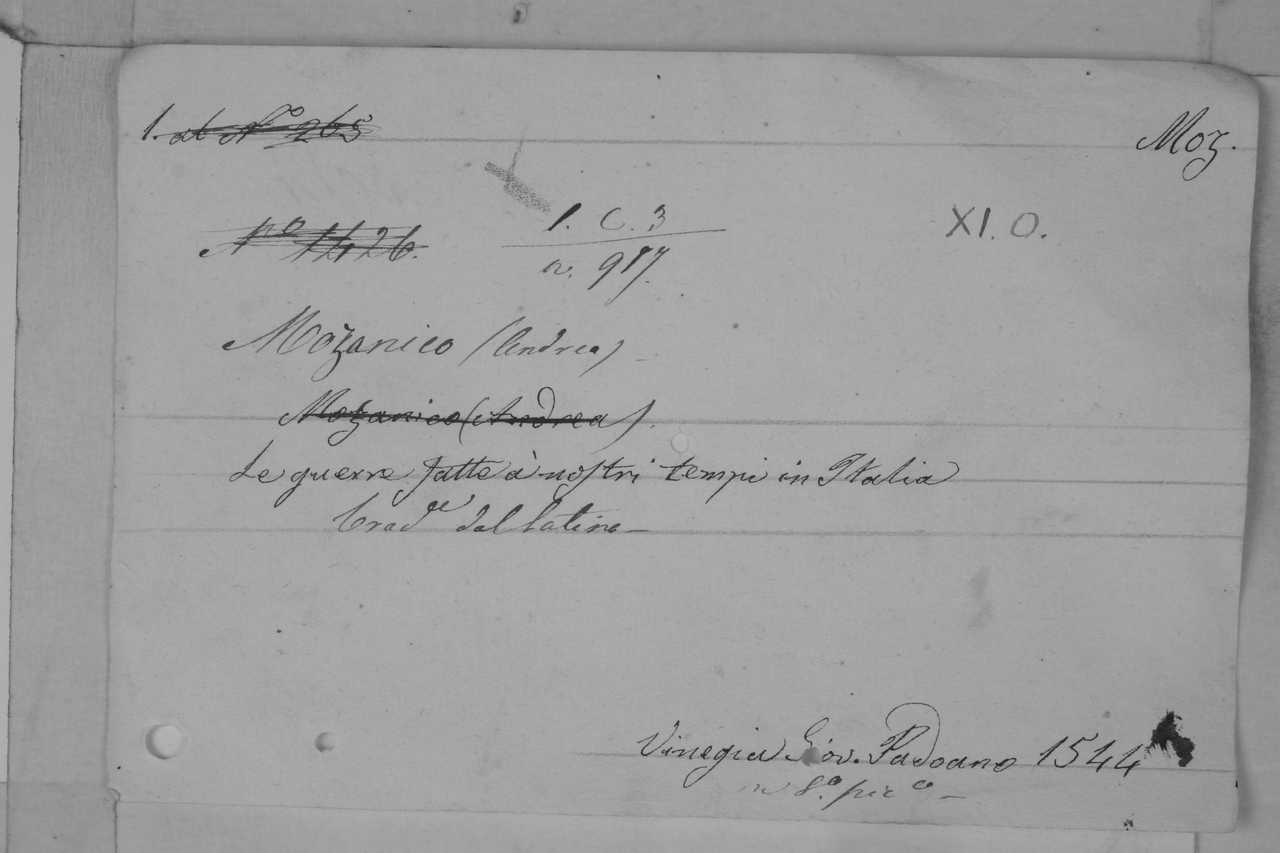 1. al N.º 265
Moz.
1. C. 3
XI. O.
Nº 1426.
n. 917.
Mozanico (Andrea) -
Mozanico (Andrea).
Le guerre fatte à nostri tempi in Italia
Trad.e dal latino -
Vinegia Giov. Padoano 1544
in 8.º picc.º -